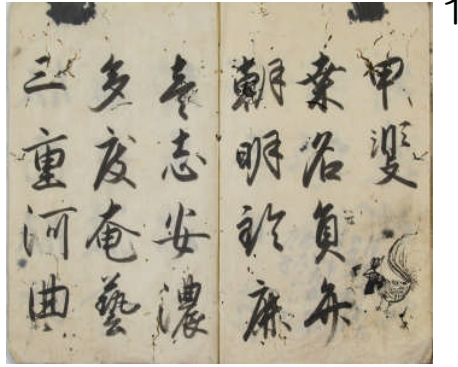 1
甲
桒名員弁
朝明鈴鹿
壹志安濃
多度奄藝
三重河曲